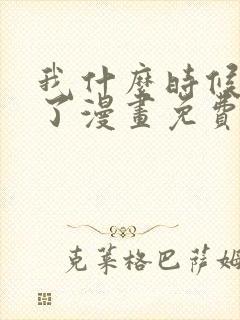 我什麼時候
了漫畫免費
克萊格巴薩姆